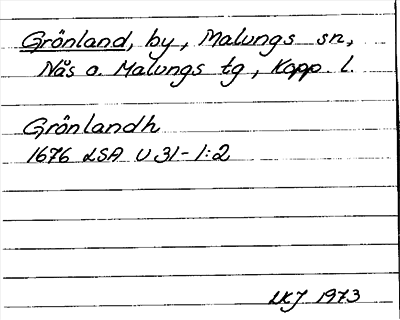 Grönland, by, Malungs sn,
Nås o. Malungs tg, Kopp. l.
Grönlandh
1676 LSA U 31-1:2
LKJ 1973